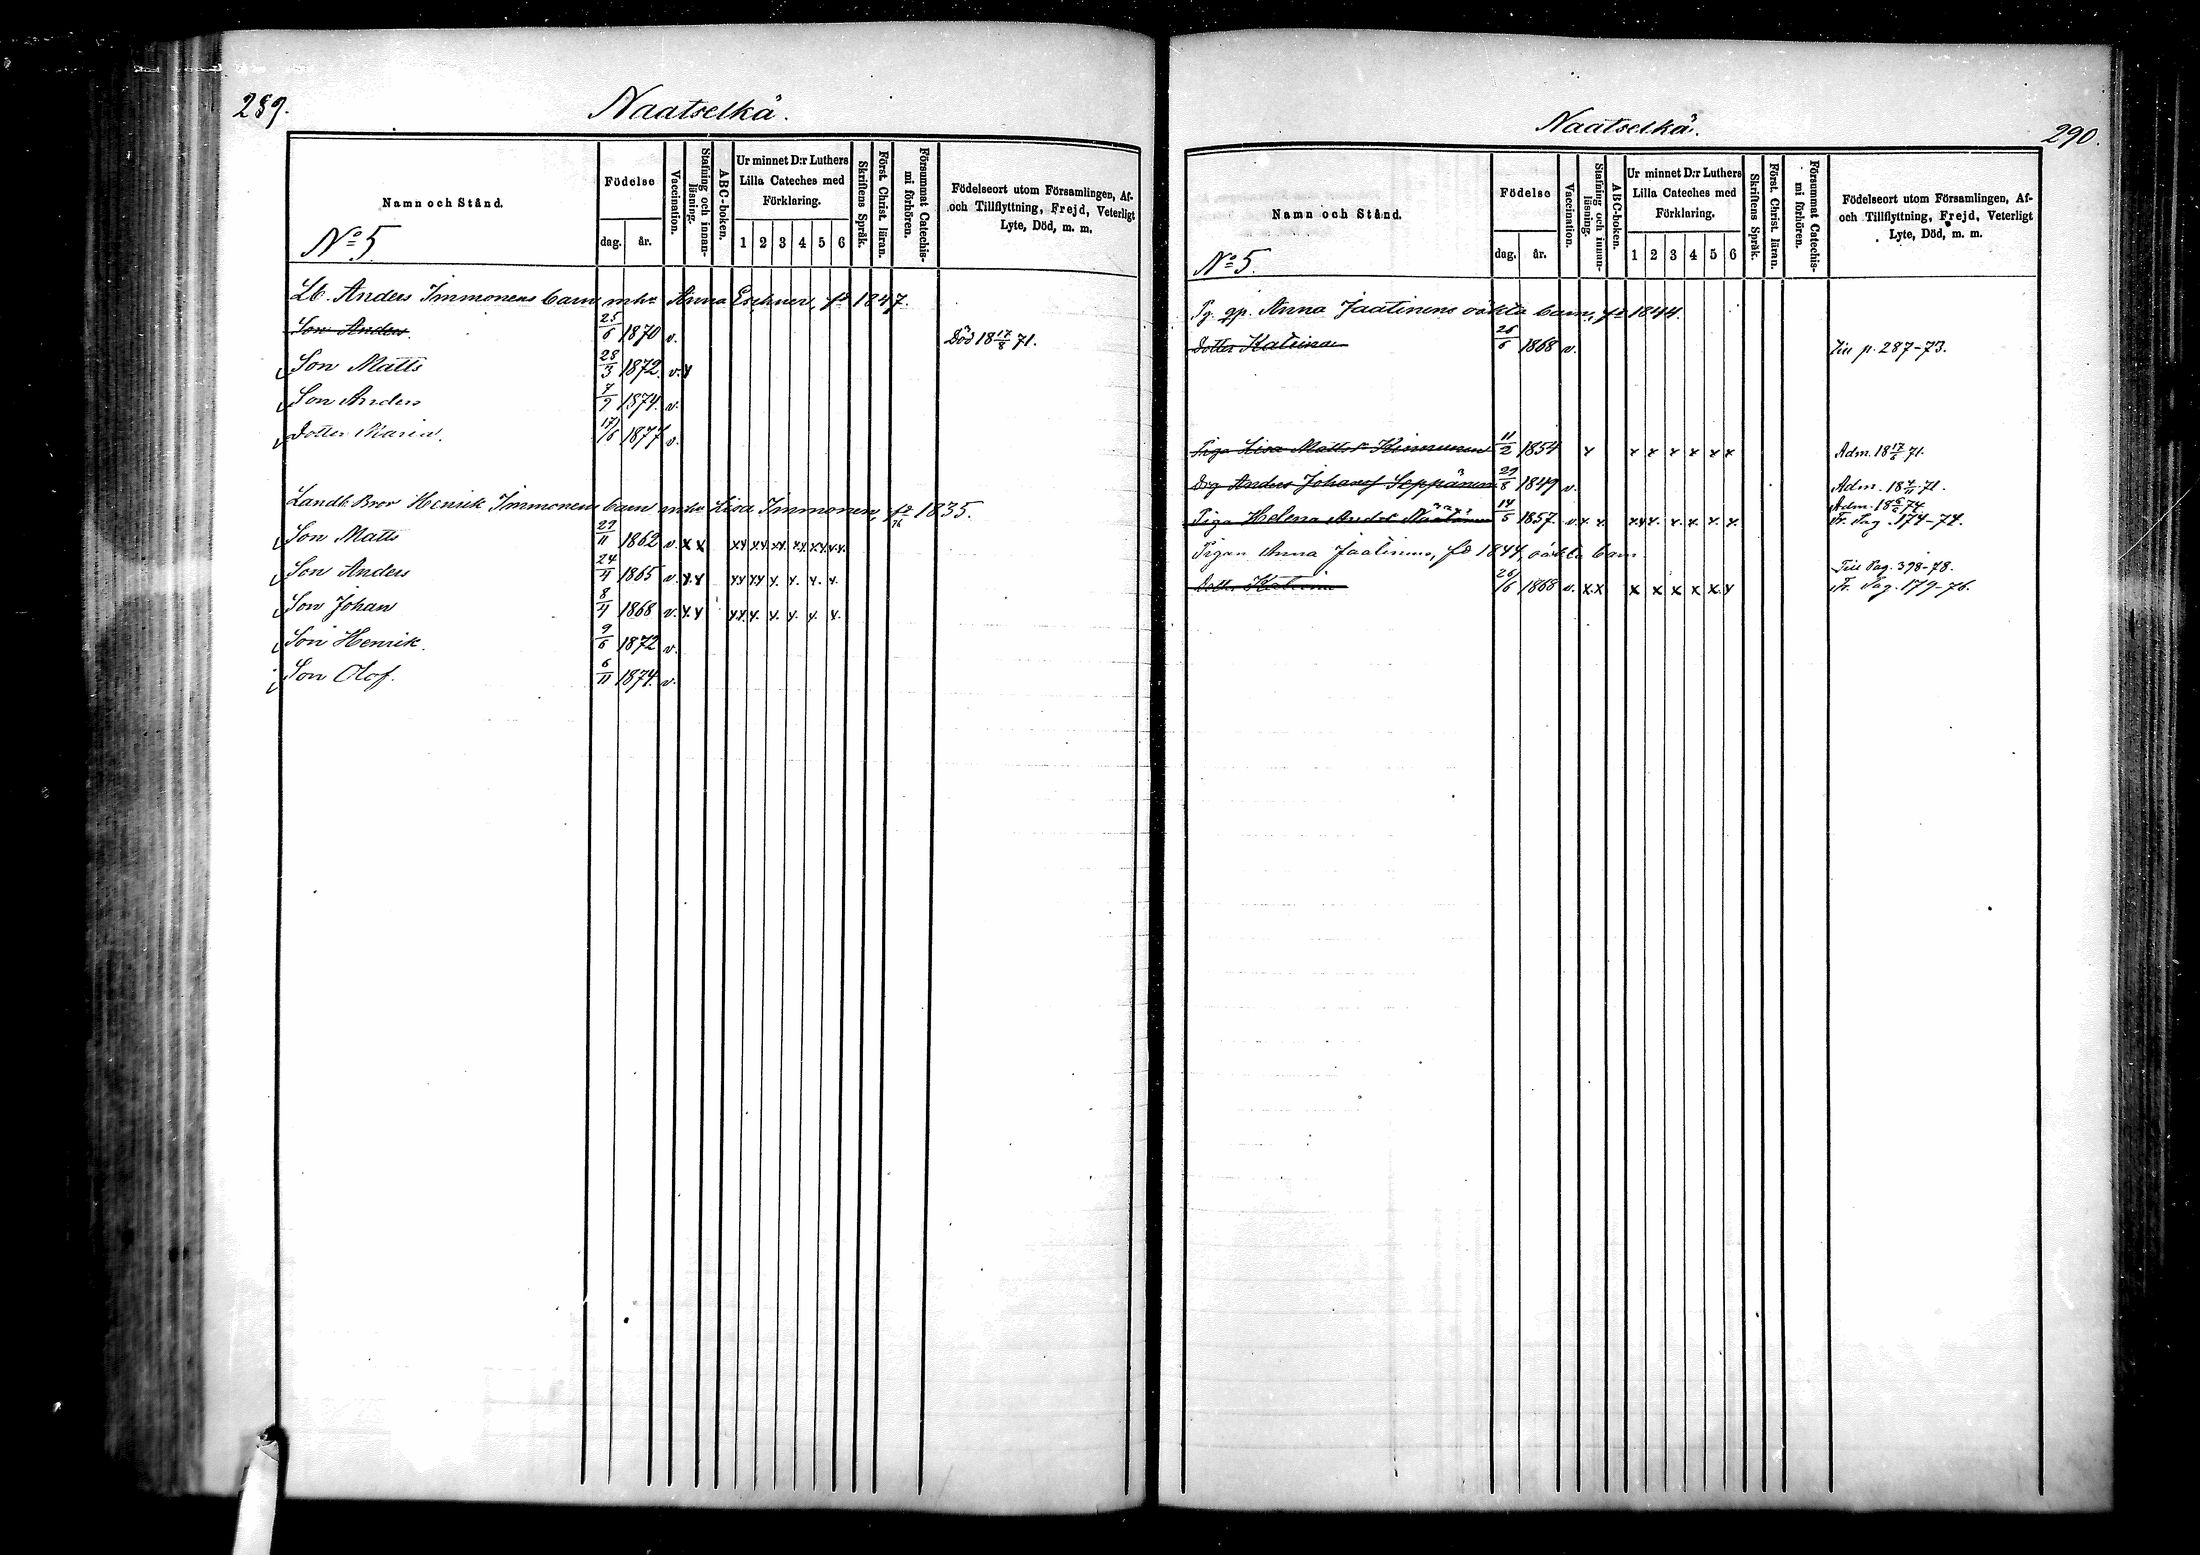 289.
Naatselkä.
Namn och Stånd.
Födelse
dag. år.
Vaccination.
Stafning och innanläsning.
ABC-boken.
Ur minnet D:r Luthers Lilla Cateches med Förklaring.
1 2 3 4 5 6
Skriftens Språk.
Först. Christ. läran.
Försummat Catechismi förhören.
Födelseort utom Församlingen, Af- och Tillflyttning, Frejd, Veterligt Lyte, Död, m. m.
No 5.
Lb. Anders Immonens barn mhu Anna Eschner, fd 1847.
Son Anders. 25/6 1870 v. Död 18 17/8 71.
Son Matts 28/3 1872 v. x
Son Anders 7/9 1874. v.
Dotter Maria. 17/6 1877 v.
Landb. Bror Henrik Immonens barn mhu Lisa Immonen, fd 1835.
Son Matts 29/11 1862 v. x x xx xx. xx. xx. xx. xx.
Son Anders 24/4 1865 v. x. x xx xx x. x. x. x.
Son Johan 8/4 1868 v. x. x xx. x. x. x. x. x.
Son Henrik. 9/6 1872 v.
Son Olof. 6/11 1874. v.
Naatselkä.
290.
Namn och Stånd.
Födelse
dag. år.
Vaccination.
Stafning och innanläsning.
ABC-boken.
Ur minnet D:r Luthers Lilla Cateches med Förklaring.
1 2 3 4 5 6
Skriftens Språk.
Först. Christ. läran.
Försummat Catechismi förhören.
Födelseort utom Församlingen, Af- och Tillflyttning, Frejd, Veterligt Lyte, Död, m. m.
No 5.
Pg. gp. Anna Jaatinens oäkta barn, fd 1844.
Dotter Katrina 26/6 1868 v. Till p. 287-73.
Piga Lisa Mattsd. Kinnunen 11/2 1854 x x x x x x x Adm. 18 17/6 71.
Drg Anders Johansf Seppänen 29/8 1849 v. Adm. 18 4/11 71.
Adm. 18 6/6 74.
Piga Helena Andsd. 14/5 1857. v. x. x. xx. x. x. x. x. x. Fr. Pag. 174-74.
Pigan Anna Jaatinens, fd 1844, oäkta barn
Till Pag. 398-78.
Dottr Katrina 26/6 1868 v. x. x x x x x x. x Fr. Pag. 179-76.